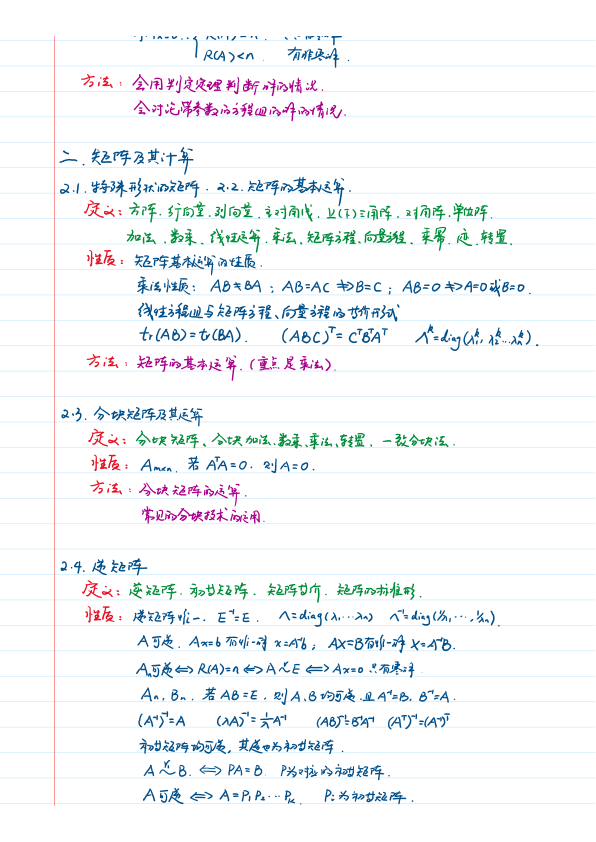 R(A)<n. 有非零解.
方法: 会用判定定理判断解的情况.
会讨论带参数的方程组的解的情况.
二. 矩阵及其计算
2.1. 特殊形状的矩阵. 2.2. 矩阵的基本运算.
定义: 方阵. 行向量. 列向量. 主对角线. 上(下)三角阵. 对角阵. 单位阵.
加法. 数乘. 线性运算. 乘法. 矩阵方程. 向量方程. 乘幂. 迹. 转置.
性质: 矩阵基本运算的性质.
乘法性质: AB≠BA; AB=AC ⇏ B=C; AB=O ⇏ A=O或B=O.
线性方程组与矩阵方程、向量方程的等价形式
tr(AB)=tr(BA). (ABC)ᵀ=CᵀBᵀAᵀ Λᵏ=diag(λ₁ᵏ, λ₂ᵏ…λₙᵏ).
方法: 矩阵的基本运算. (重点是乘法).
2.3. 分块矩阵及其运算
定义: 分块矩阵、分块加法、数乘、乘法、转置. 一致分块法.
性质: Aₘₓₙ. 若 AᵀA=O. 则A=O.
方法: 分块矩阵的运算.
常见的分块技术的应用.
2.4. 逆矩阵
定义: 逆矩阵. 初等矩阵. 矩阵等价. 矩阵的标准形.
性质: 逆矩阵唯一. E⁻¹=E. Λ=diag(λ₁…λₙ) Λ⁻¹=diag(1/λ₁,…,1/λₙ).
A可逆. Ax=b有唯一解 x=A⁻¹b; AX=B有唯一解 X=A⁻¹B.
Aₙ可逆 ⇔ R(A)=n ⇔ A ~ʳ E ⇔ Ax=o 只有零解
Aₙ, Bₙ. 若AB=E. 则A、B均可逆. 且A⁻¹=B. B⁻¹=A.
(A⁻¹)⁻¹=A (λA)⁻¹=1/λ A⁻¹ (AB)⁻¹=B⁻¹A⁻¹ (Aᵀ)⁻¹=(A⁻¹)ᵀ
初等矩阵均可逆, 其逆也为初等矩阵.
A ~ʳ B. ⇔ PA=B. P为对应的初等矩阵.
A可逆 ⇔ A=P₁P₂…Pₖ. Pᵢ为初等矩阵.